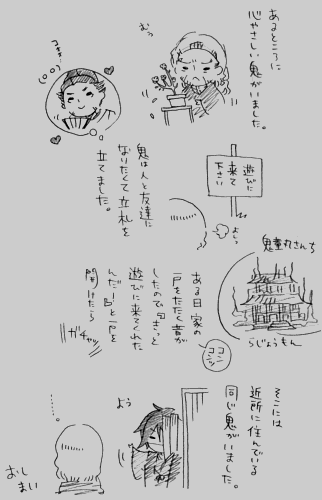 あるところに
心やさしい鬼がいました。
むっ
つきっ
鬼は人と友達に
なりたくて立札を
立てました。
遊びに
来て
下さい
よしっ
鬼童丸さんち
らじょうもん
ある日家の
戸をたたく音が
したのできっと
遊びに来てくれた
んだーと戸を
開けたら
コン
コン
ガチャッ
そこには
近所に住んでいる
同じ鬼がいました。
よう
……
おし
まい